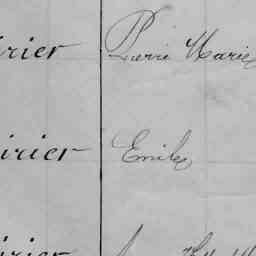 irier Pierre Marie
irier Emile
irier